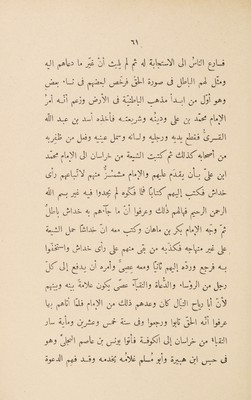 ٦١
فسارع الناسُ الى الاستجابة له ثم لم يلبث أنْ غيَّر ما دعاهم اليه
ومثَّل لهم الباطل في صورة الحقّ فرخّص لبعضهم في نساء بعض
وهو أوّل من أبدأ مذهب الباطنيّة في الأرض وزعم أنّه أمرُ
الإمام محمّد بن علي ودينُه وشريعته فأخذه أسد بن عبد الله
القسريُّ فقطع يديه ورجليه ولسانه وسمل عينيه وفعل من ظفر به
من أصحابه كذلك ثم كتبت الشيعة من خراسان الى الإمام محمّد
ابن عليّ بأن يقدم عليهم والإمام مشمئزٌّ منهم لاتّباعهم رأى
خداش فكتب إليهم كتابًا فلمّا فكّوه لم يجدوا فيه غير بسم الله
الرحمن الرحيم فهالهم ذلك وعرفوا أنّ ما جآءهم به خداش باطلٌ
ثمّ وجّه الإمام بكر بن ماهان وكتب معه انّ خداشًا حمل الشيعة
على غير منهاجه فكذّبه من بقى منهم على رأى خداش واستخفّوا
به فرجع وردّه إليهم ثانيًا ومعه عِصىٌّ وأمره أن يدفع إلى كلّ
رجل من الرؤساء والدُّعاة والنقبآء عصًى يكون علامةً بينه وبينهم
لأنّ أبا رياح النبّال كان وعدهم ذلك من الإمام فلمّا أتاهم بها
عرفوا أنّه الحقّ تابوا ورجعوا وفى سنة خمس وعشرين ومأية سار
النقباء من خراسان إلى الكوفة فأتوا يونس بن عاصم العجلىّ وهو
في حبس ابن هبيرة وأبو مُسلم غلامُه يخدمه وقد فهم الدعوة